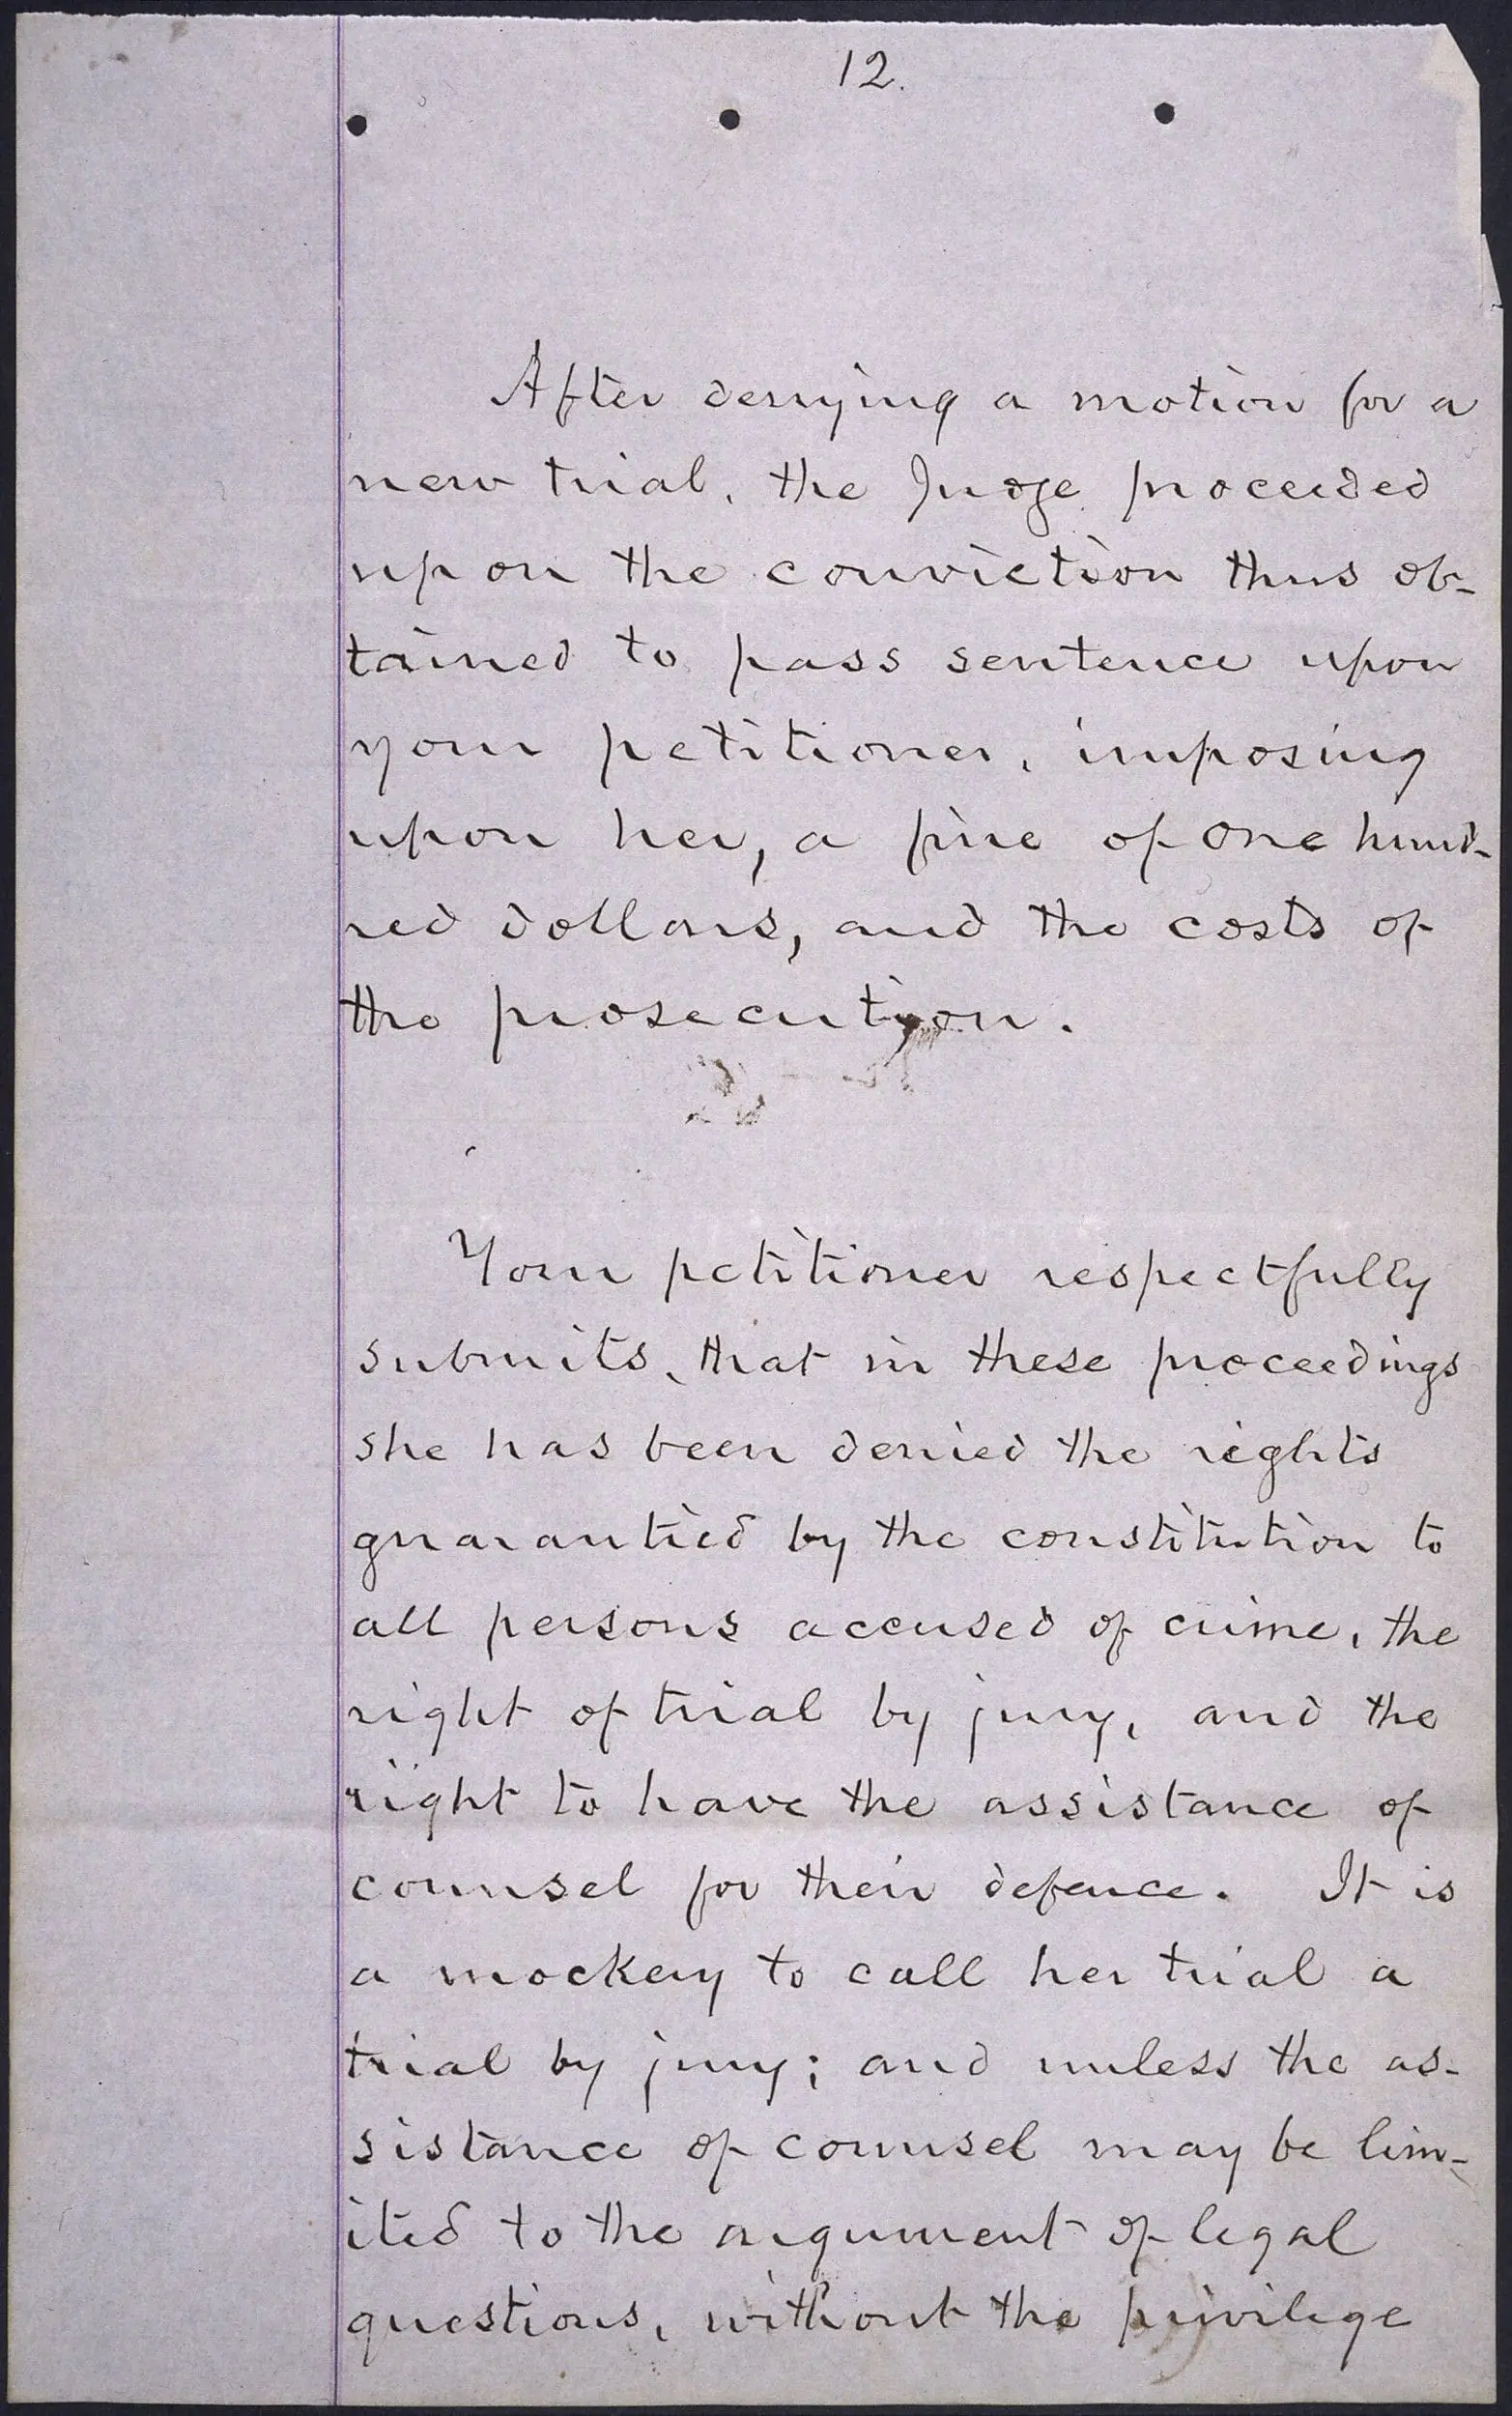 12.
After denying a motion for a
new trial, the Judge proceeded
upon the conviction thus ob-
tained to pass sentence upon
your petitioner, imposing
upon her, a fine of one hund-
red dollars, and the costs of
the prosecution.
Your petitioner respectfully
submits, that in these proceedings
she has been denied the rights
guarantied by the constitution to
all persons accused of crime, the
right of trial by jury, and the
right to have the assistance of
counsel for their defence. It is
a mockery to call her trial a
trial by jury; and unless the as-
sistance of counsel may be lim-
ited to the argument of legal
questions, without the privilege